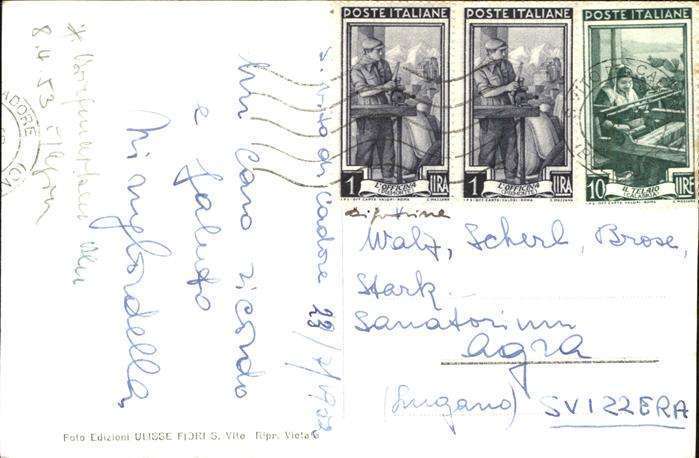 POSTE ITALIANE
POSTE ITALIANE
POSTE ITALIANE
1 L'OFFICINA LIRA
(PIEMONTE)
1 L'OFFICINA LIRA
(PIEMONTE)
10 IL TELAIO LIRE
(CALABRIA)
I.P.S. OFF. CARTE-VALORI-ROMA
I.P.S. OFF. CARTE-VALORI-ROMA
CADORE
S. Vito di Cadore 23/7/1952
Un caro ricordo
e saluto
8.4.53
Walz, Scherl, Brose,
Stark.
Sanatorium
Agra
(Lugano) SVIZZERA
Foto Edizioni ULISSE FIORI S. Vito Ripr. Vietata